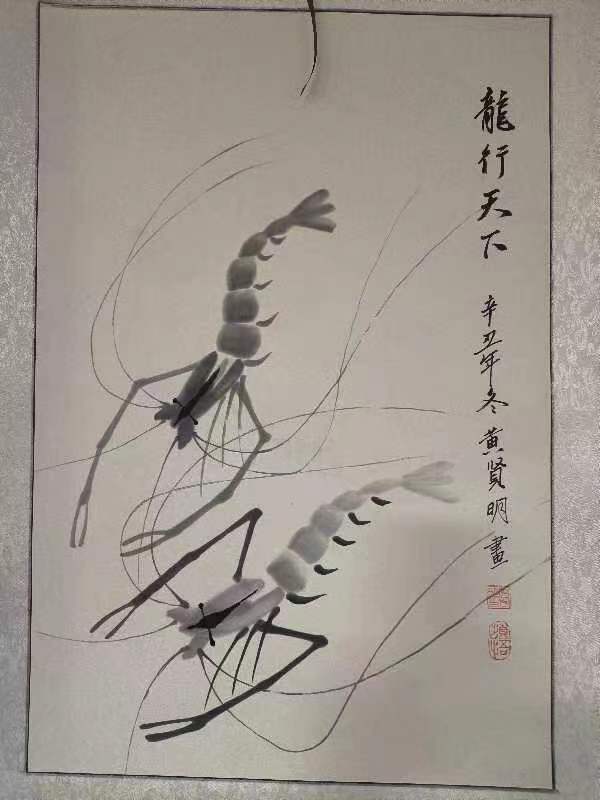 龍行天下
辛丑年冬黄贤明畫